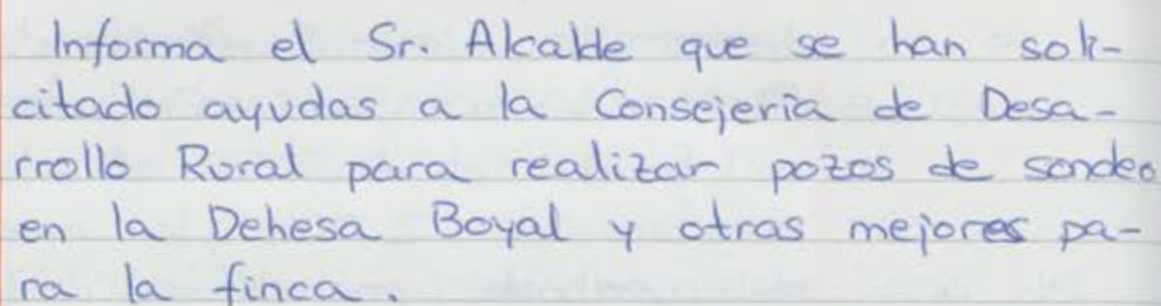 Informa el Sr. Alcalde que se han soli-
citado ayudas a la Consejería de Desa-
rrollo Rural para realizar pozos de sondeo
en la Dehesa Boyal y otras mejores pa-
ra la finca.